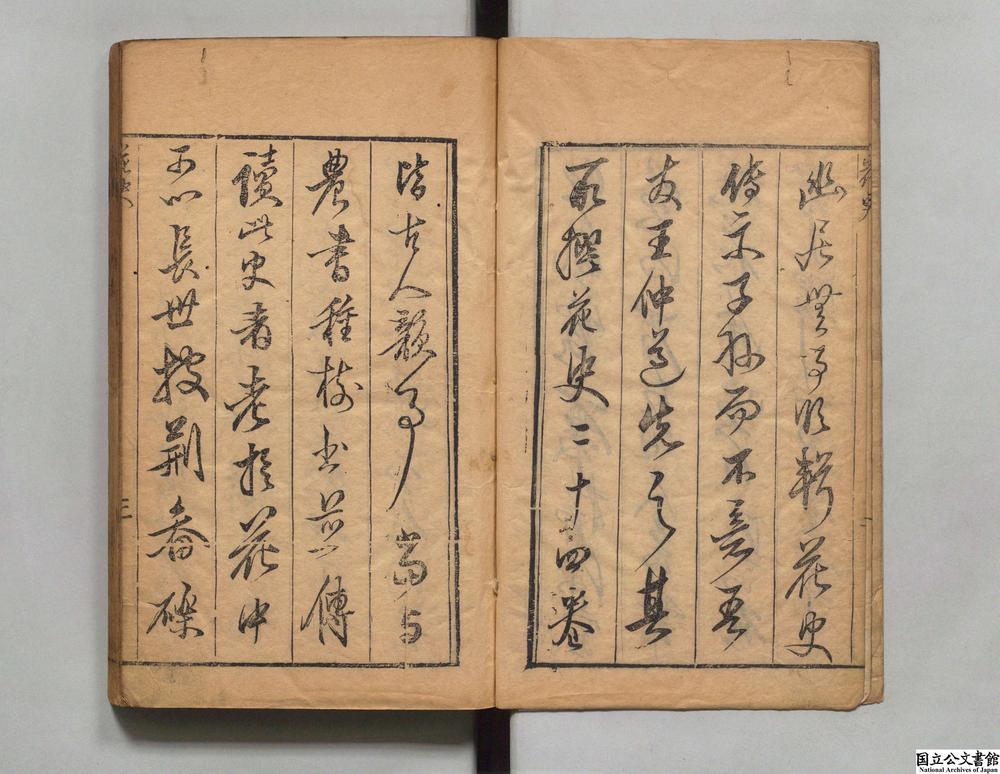 幽居無事欲輯花史
傳示子孫而不意吾
友王仲遵先之其
所撰花史二十四卷
皆古人韻事當與
農書種樹書並傳
讀此史者老於花中
可以長世披荊畚礫
花史
三
国立公文書館
National Archives of Japan